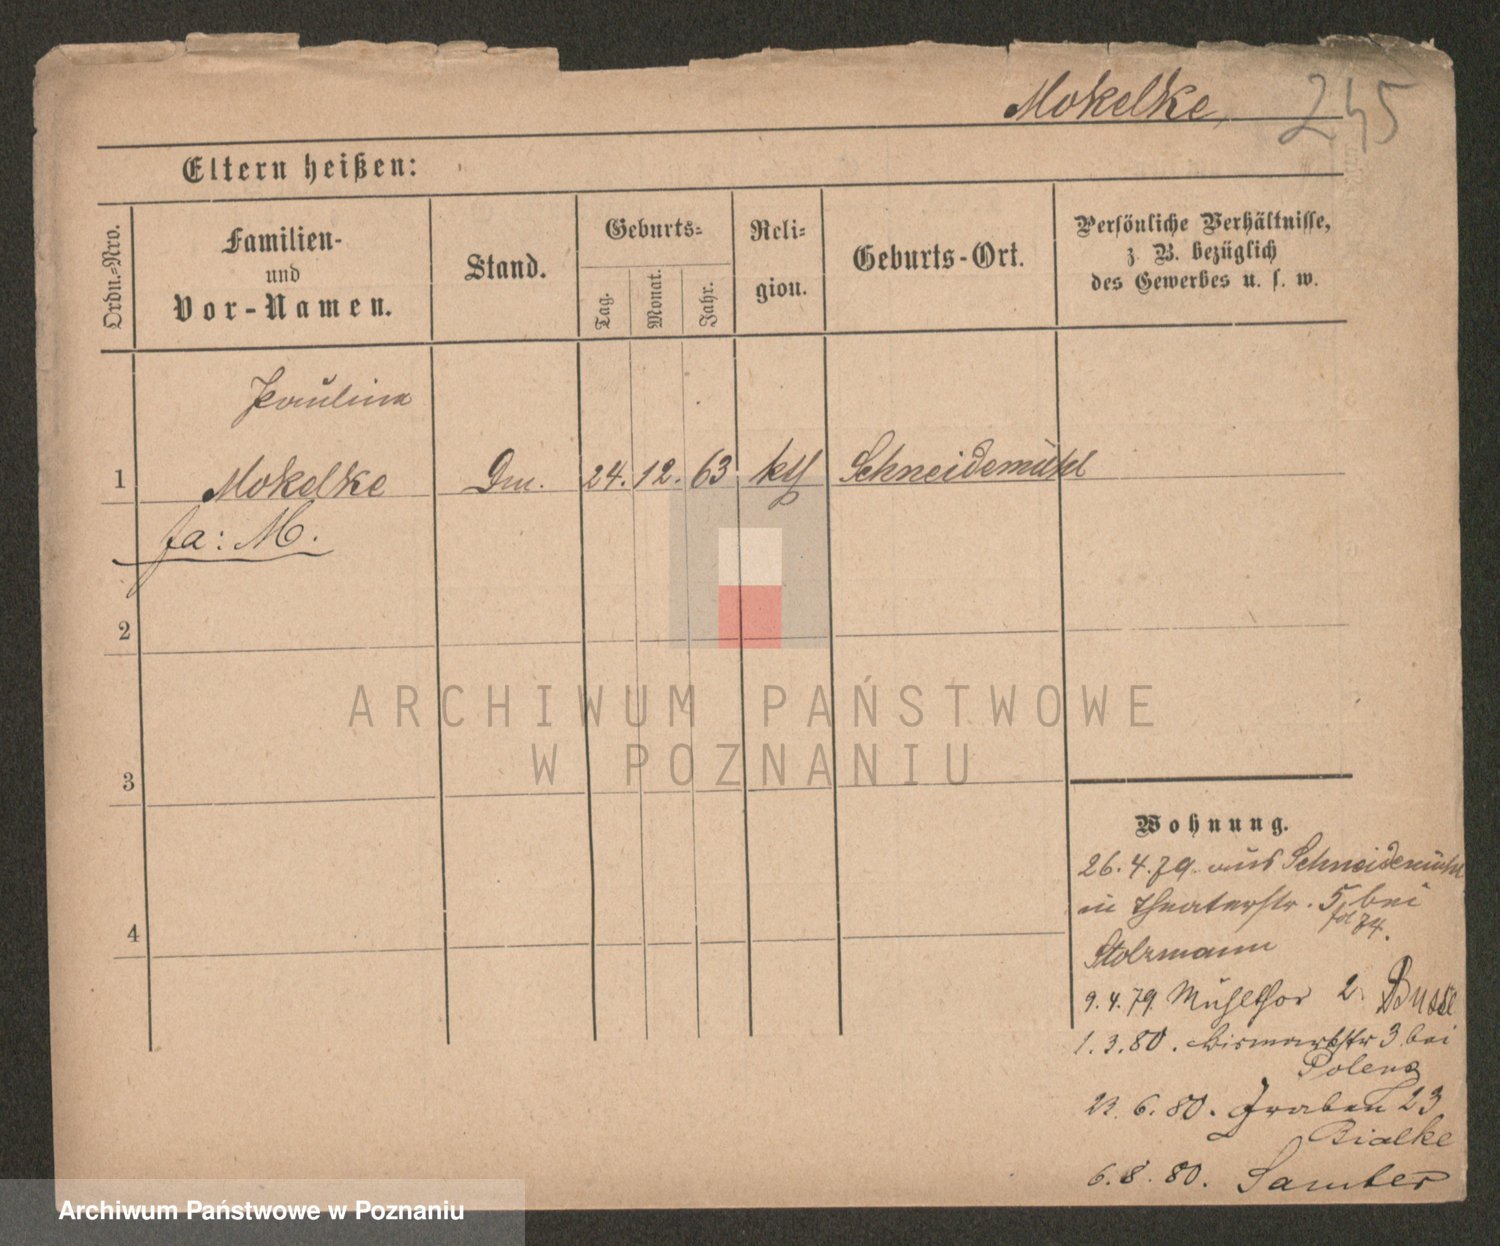 Mokelke, 245
Eltern heißen:
Ordn.=Nro.
Familien-
und
Vor-Namen.
Stand.
Geburts=
Tag.
Monat.
Jahr.
Reli=
gion.
Geburts-Ort.
Persönliche Verhältnisse,
z. B. bezüglich
des Gewerbes u. s. w.
Paulina
1 Mokelke Dm. 24. 12. 63 kth Schneidemühl
fa: M.
2
3
4
Wohnung.
26. 4. 79. aus Schneidemühl
in Theaterstr. 5 bei
Stolzmann
9. 4. 79 Mühlthor 2 Busse
1. 3. 80. Bismarkstr 3 bei
Polenz
23. 6. 80. Graben 23
Bialke
6. 8. 80. Samter
ARCHIWUM PAŃSTWOWE
W POZNANIU
Archiwum Państwowe w Poznaniu